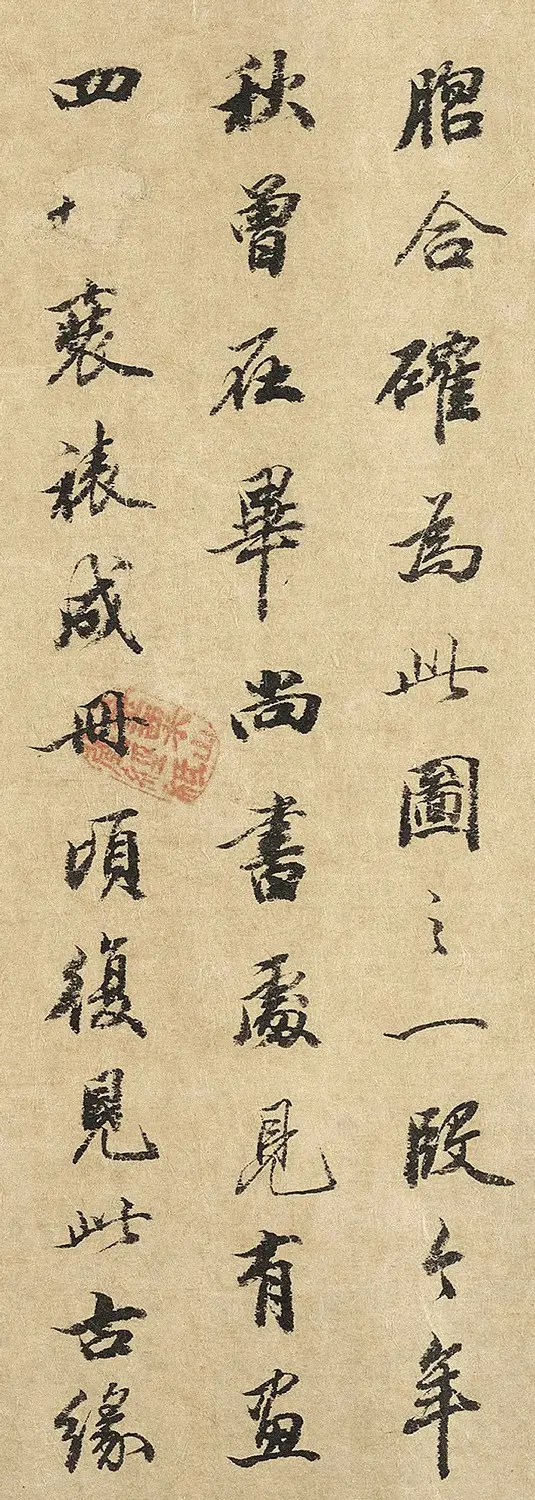 脗合確為此圖之一段今年
秋曾在畢尚書處見有畫
四裝裱成冊頃復見此古緣